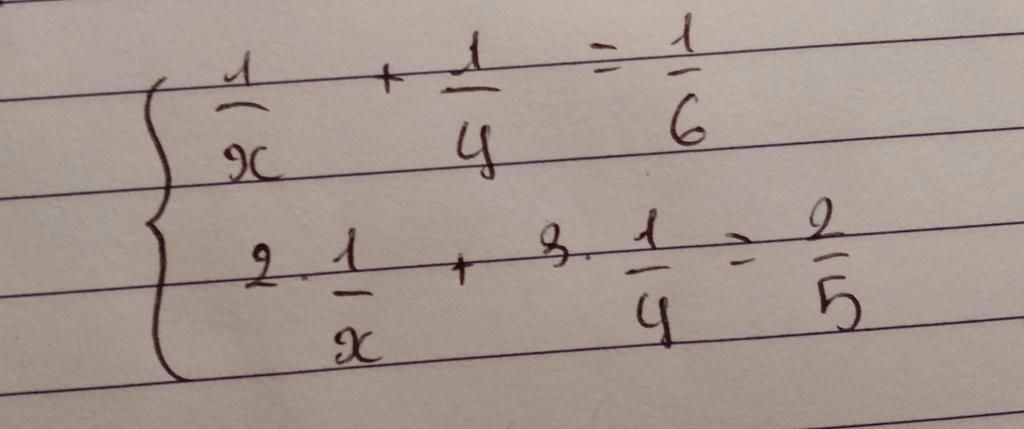 1/x + 1/y = 1/6
2 · 1/x + 3 · 1/y = 2/5